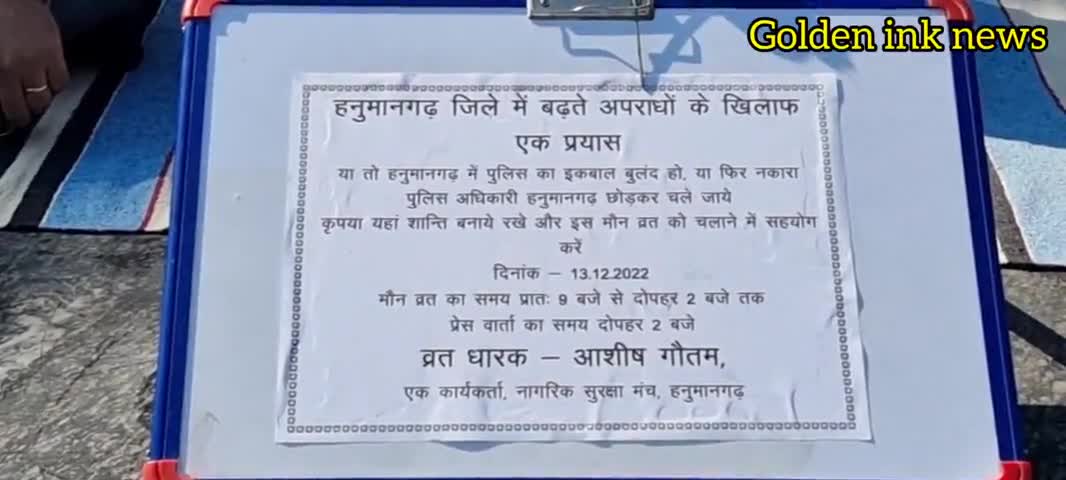 Golden ink news
हनुमानगढ़ जिले में बढ़ते अपराधों के खिलाफ
एक प्रयास
या तो हनुमानगढ़ में पुलिस का इकबाल बुलंद हो, या फिर नकारा
पुलिस अधिकारी हनुमानगढ़ छोड़कर चले जाये
कृपया यहां शान्ति बनाये रखे और इस मौन व्रत को चलाने में सहयोग
करें
दिनांक – 13.12.2022
मौन व्रत का समय प्रातः 9 बजे से दोपहर 2 बजे तक
प्रेस वार्ता का समय दोपहर 2 बजे
व्रत धारक – आशीष गौतम,
एक कार्यकर्ता, नागरिक सुरक्षा मंच, हनुमानगढ़